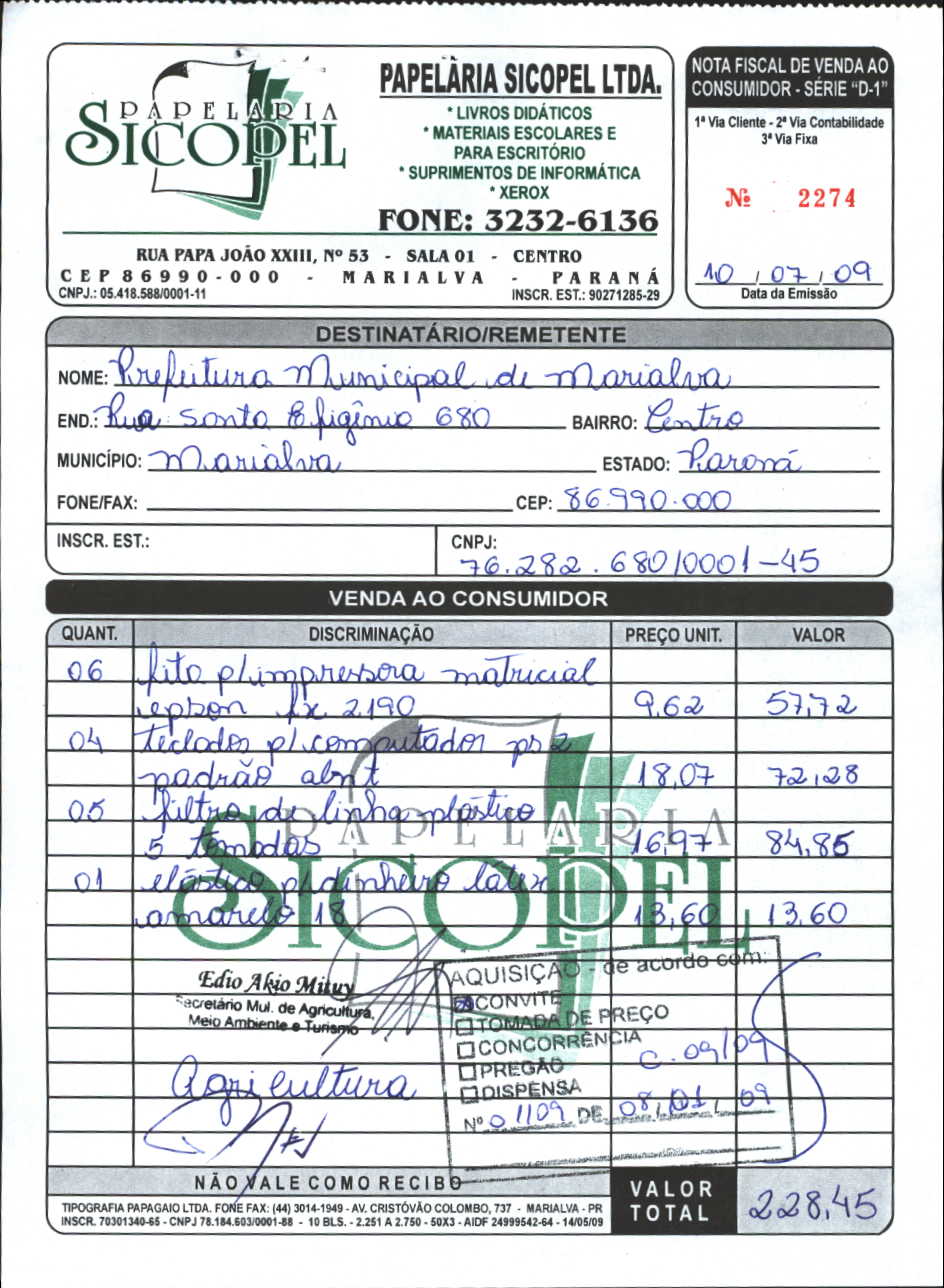 PAPELARIA
SICOPEL
PAPELÀRIA SICOPEL LTDA.
* LIVROS DIDÁTICOS
* MATERIAIS ESCOLARES E
PARA ESCRITÓRIO
* SUPRIMENTOS DE INFORMÁTICA
* XEROX
FONE: 3232-6136
RUA PAPA JOÃO XXIII, Nº 53 - SALA 01 - CENTRO
CEP 86990-000 - MARIALVA - PARANÁ
CNPJ.: 05.418.588/0001-11 INSCR. EST.: 90271285-29
NOTA FISCAL DE VENDA AO
CONSUMIDOR - SÉRIE "D-1"
1ª Via Cliente - 2ª Via Contabilidade
3ª Via Fixa
Nº 2274
10 / 07 / 09
Data da Emissão
DESTINATÁRIO/REMETENTE
NOME: Prefeitura Municipal de Marialva
END.: Rua Santa Efigênia 680 BAIRRO: Centro
MUNICÍPIO: Marialva ESTADO: Paraná
FONE/FAX: CEP: 86.990.000
INSCR. EST.: CNPJ:
76.282.680/0001-45
VENDA AO CONSUMIDOR
QUANT. DISCRIMINAÇÃO PREÇO UNIT. VALOR
06 fita p/impressora matricial
epson fx 2190 9,62 57,72
04 teclados p/ computador ps2
padrão abnt 18,07 72,28
05 filtro de linha plástico
5 tomadas 16,97 84,85
01 elástico p/dinheiro látex
amarelo 18 13,60 13,60
PAPELARIA
SICOPEL
Edio Akio Mituy
Secretário Mul. de Agricultura,
Meio Ambiente e Turismo
Agricultura
AQUISIÇÃO - de acordo com:
CONVITE
TOMADA DE PREÇO
CONCORRÊNCIA
PREGÃO
C. 09/09
DISPENSA
Nº 01109 DE 08/01/09
NÃO VALE COMO RECIBO
VALOR
TOTAL
228,45
TIPOGRAFIA PAPAGAIO LTDA. FONE FAX: (44) 3014-1949 - AV. CRISTÓVÃO COLOMBO, 737 - MARIALVA - PR
INSCR. 70301340-65 - CNPJ 78.184.603/0001-88 - 10 BLS. - 2.251 A 2.750 - 50X3 - AIDF 24999542-64 - 14/05/09